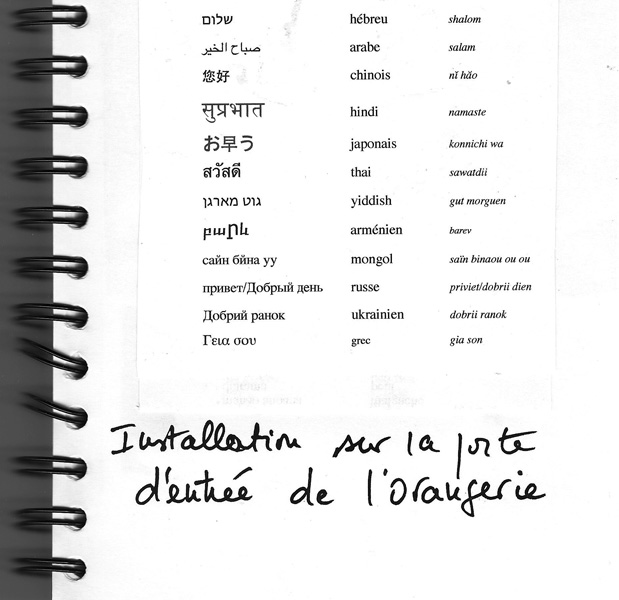 שלום hébreu shalom
صباح الخير arabe salam
您好 chinois nǐ hǎo
सुप्रभात hindi namaste
お早う japonais konnichi wa
สวัสดี thai sawatdii
גוט מארגן yiddish gut morguen
բարև arménien barev
сайн бйна уу mongol saïn binaou ou ou
привет/Добрый день russe priviet/dobrii dien
Добрий ранок ukrainien dobrii ranok
Γεια σου grec gia son
Installation sur la porte
d'entrée de l'Orangerie